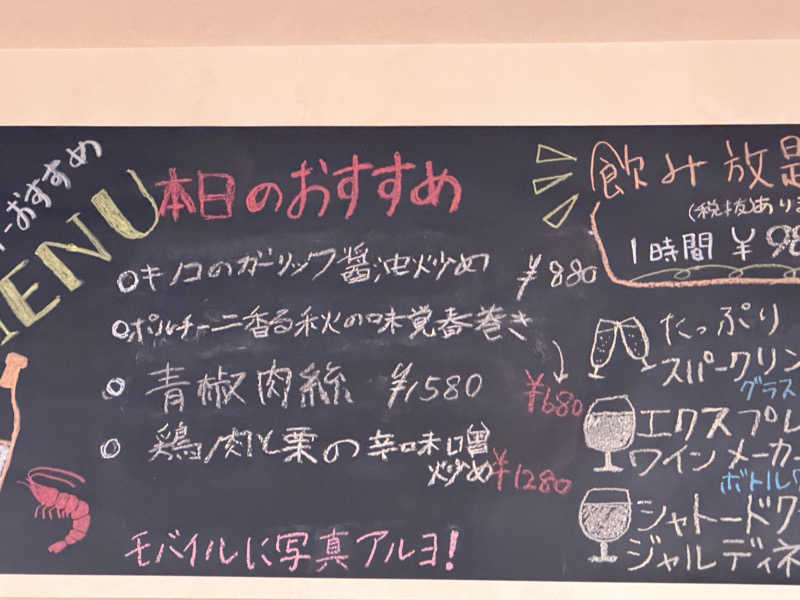 おすすめ
MENU
本日のおすすめ
○キノコのガーリック醤油炒め ¥880
○ポルチーニ香る秋の味覚春巻き
¥680
○青椒肉絲 ¥1580
○鶏肉と栗の辛味噌
炒め ¥1280
モバイルに写真アルヨ!
飲み放題
(税抜)あり
1時間 ¥98
たっぷり
スパークリン
グラス
エクスプレ
ワインメーカー
ボトル
シャトードク
ジャルディネ